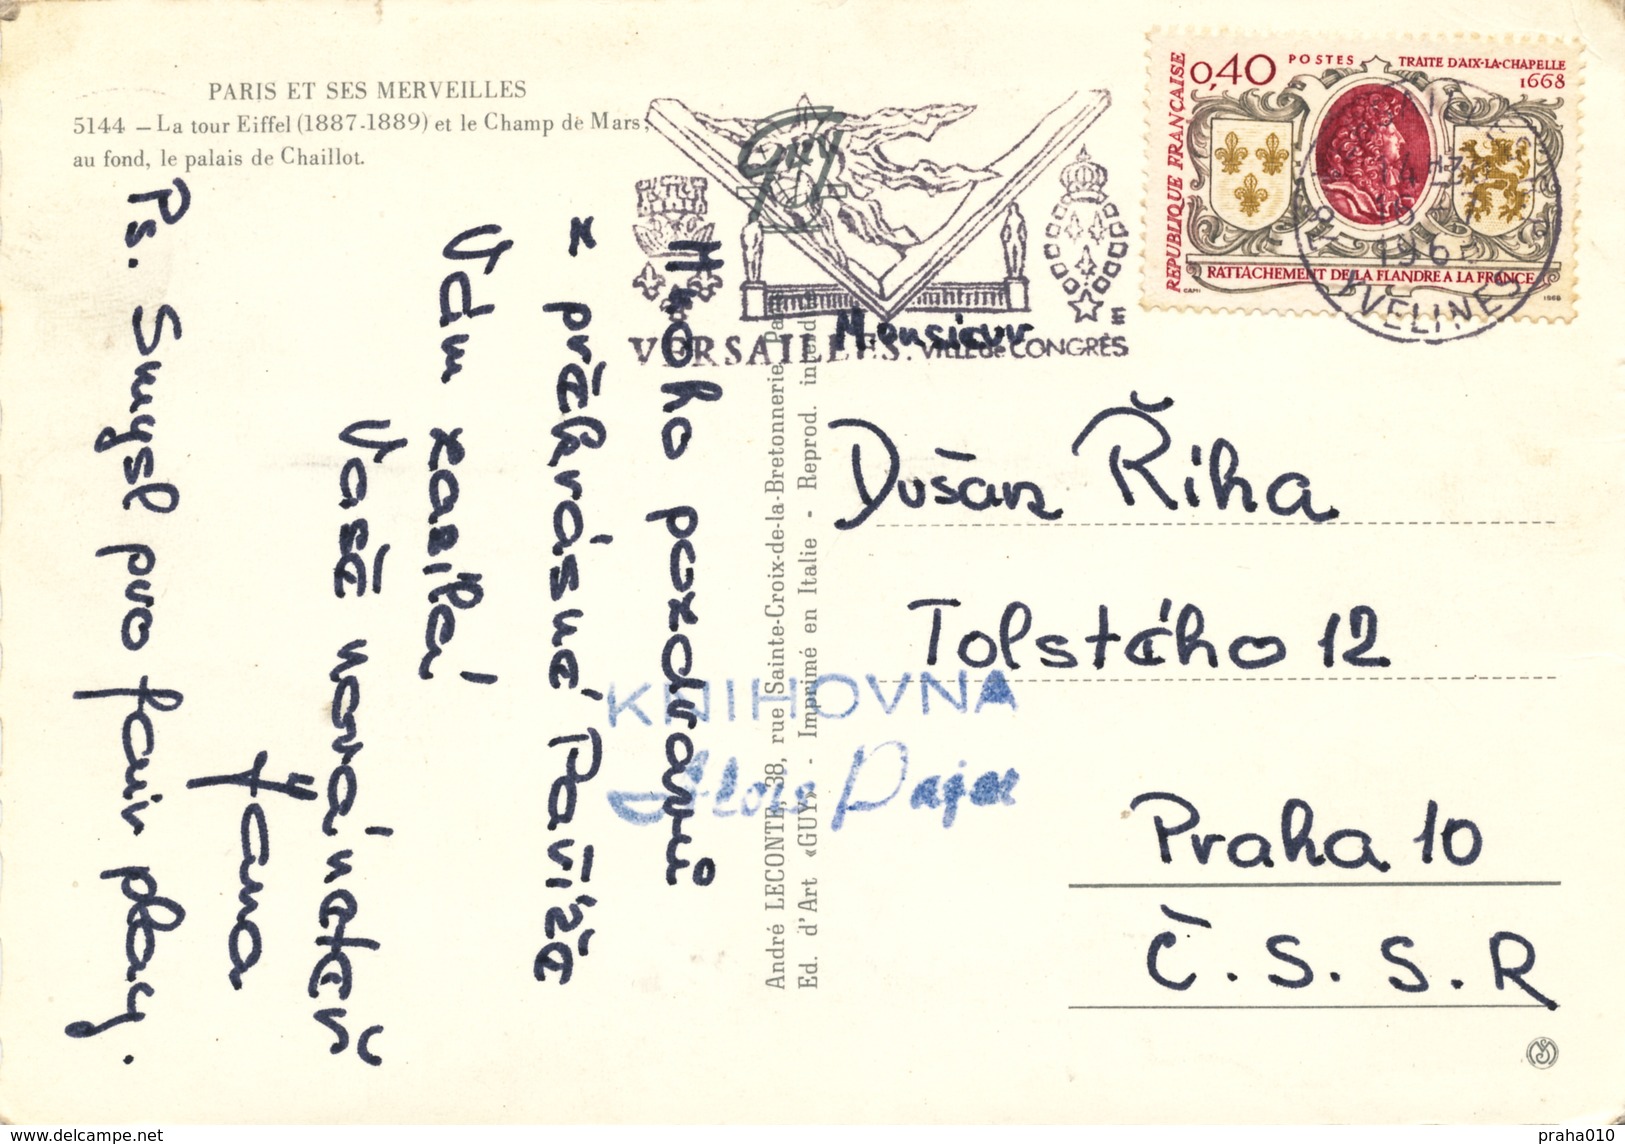 PARIS ET SES MERVEILLES
5144 – La tour Eiffel (1887-1889) et le Champ de Mars;
au fond, le palais de Chaillot.
guy
0,40 POSTES TRAITE D'AIX-LA-CHAPELLE
1668
REPUBLIQUE FRANCAISE
RATTACHEMENT DE LA FLANDRE A LA FRANCE
CAMI 1968
YVELINES
VERSAILLES. VILLE de CONGRÈS
Monsieur
Dušan Říha
Tolstého 12
Praha 10
Č.S.S.R
Mnoho pozdravů
z překrásné Paříže
Vám zasílá
Vaše
Jana
Ps. Smysl pro fair play.
André LECONTE, 38, rue Sainte-Croix-de-la-Bretonnerie,
Ed. d'Art «GUY» - Imprimé en Italie - Reprod.
KNIHOVNA
praha010